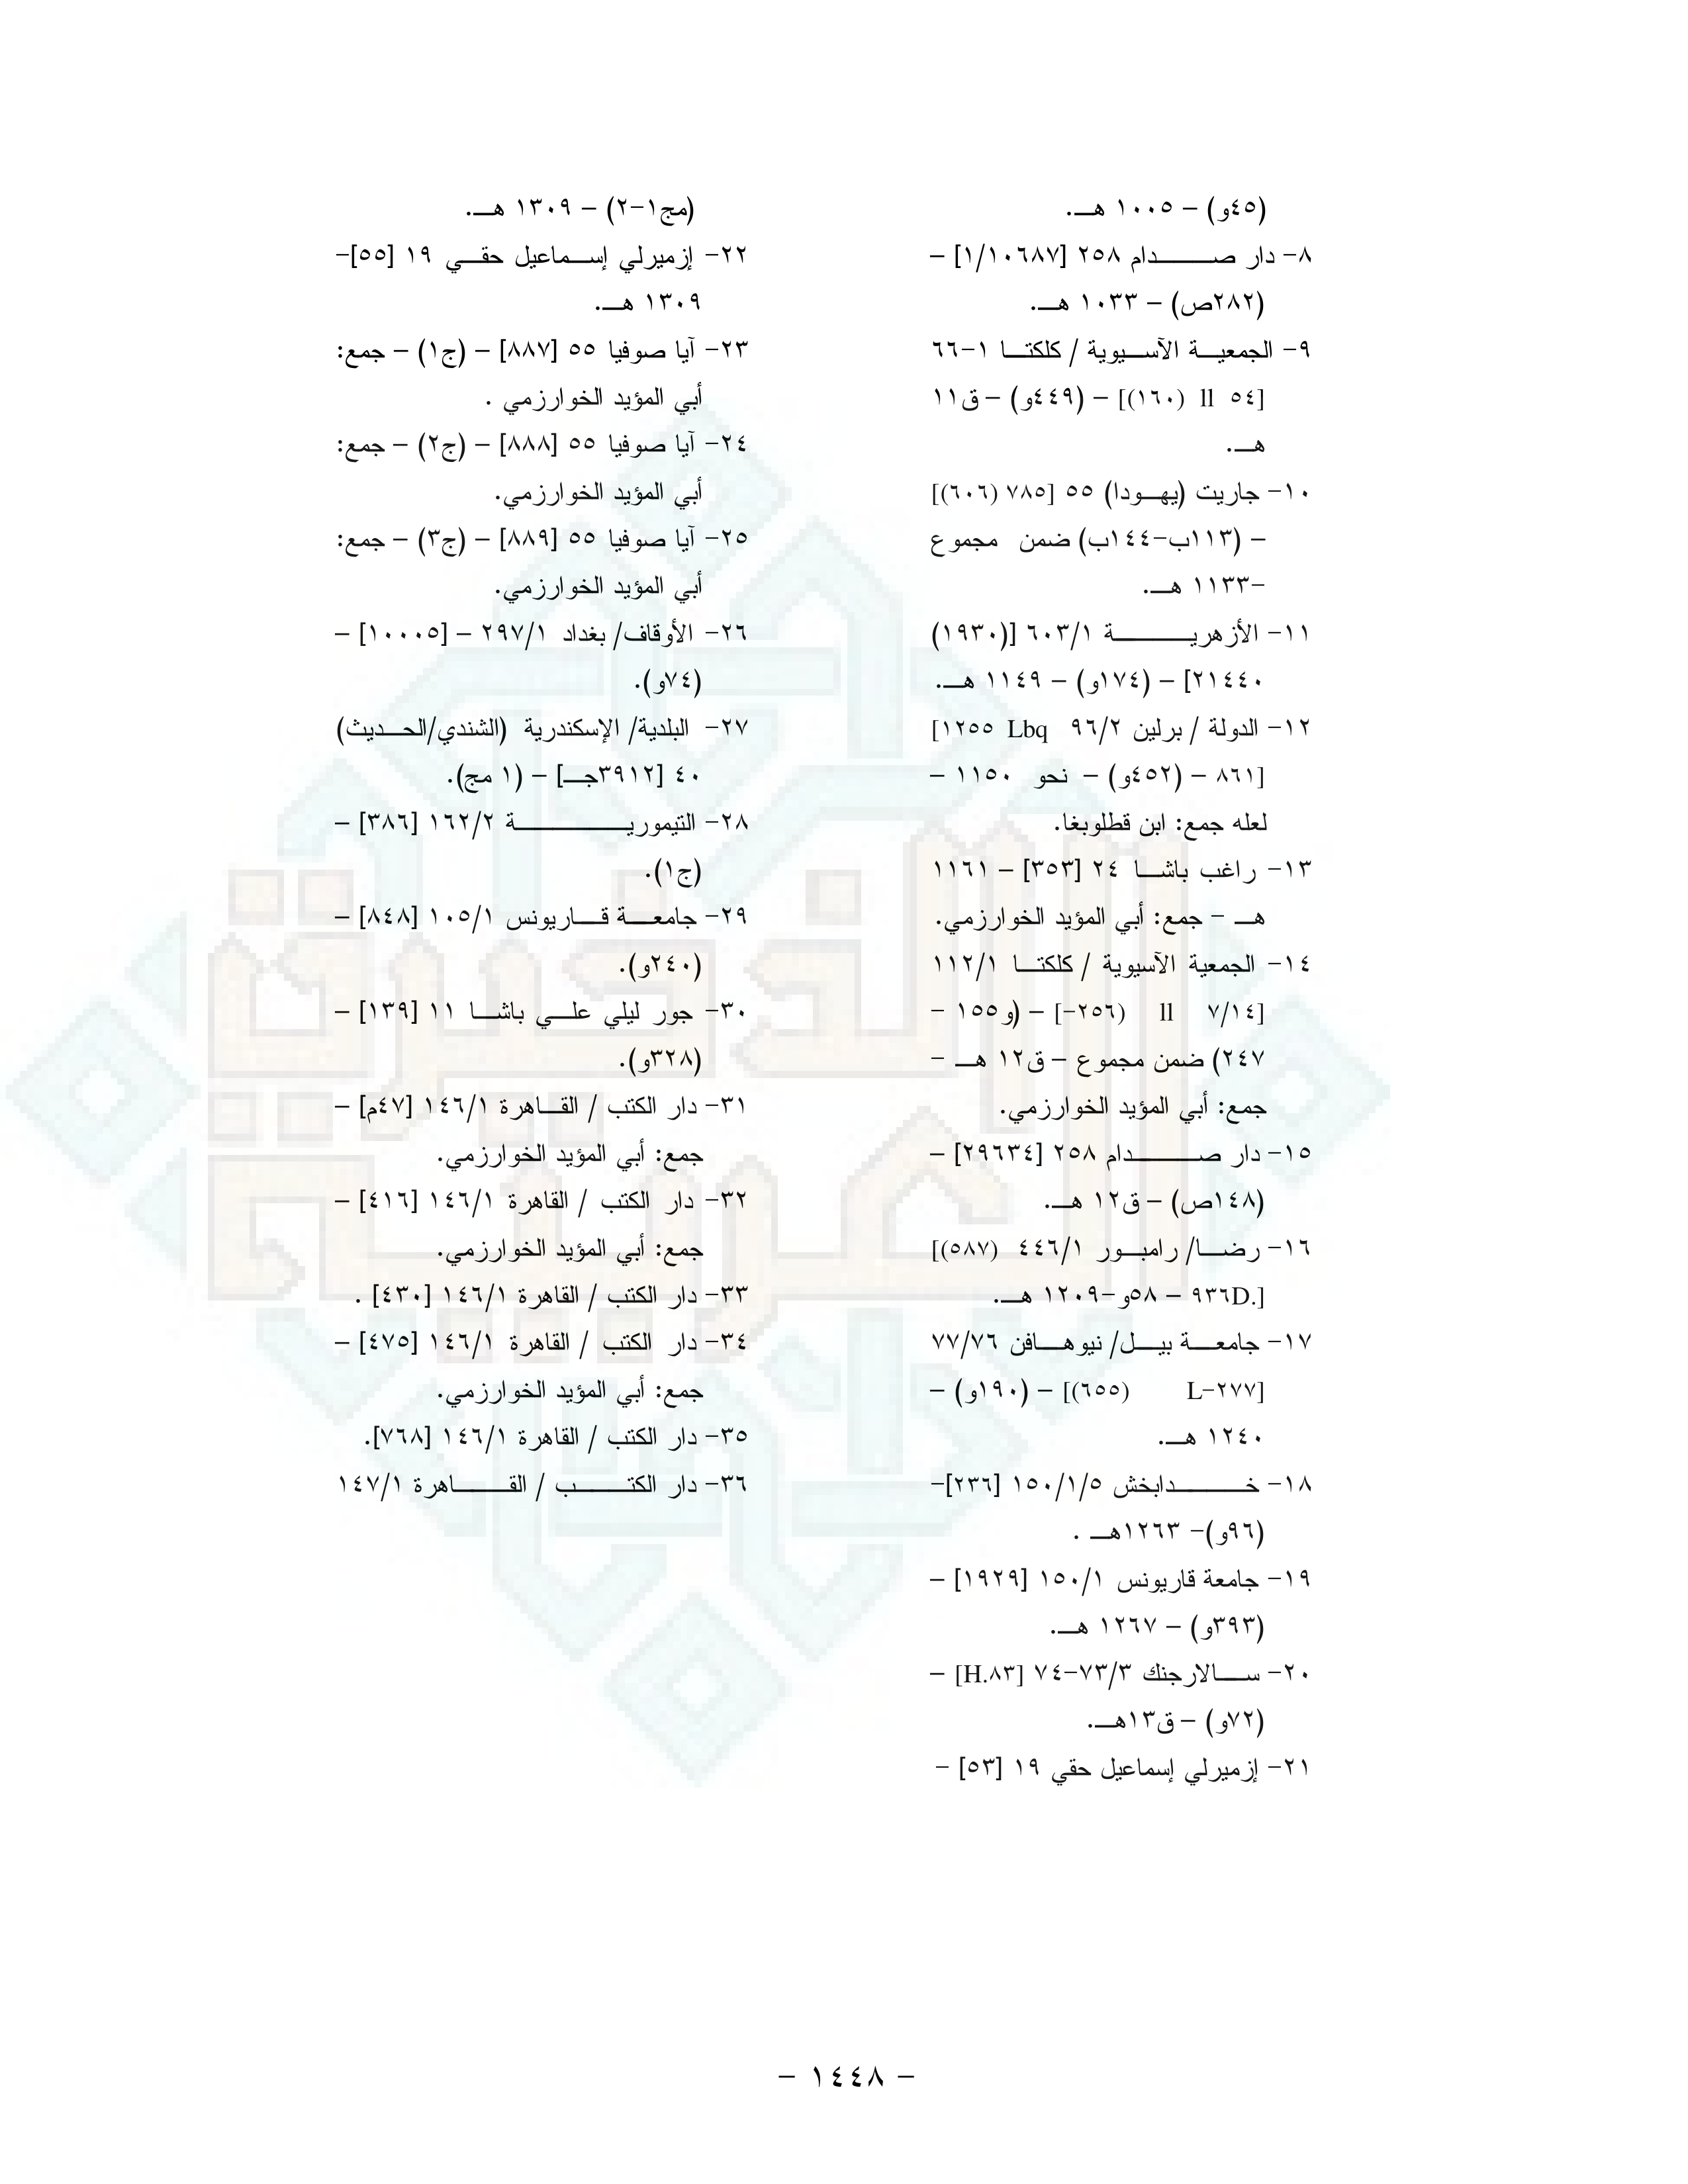 (٤٥و) – ١٠٠٥ هـ.
٨- دار صدام ٢٥٨ [١/١٠٦٨٧] –
(٢٨٢ص) – ١٠٣٣ هـ.
٩- الجمعية الآسيوية / كلكتا ١-٦٦
[٥٤ ll (١٦٠)] – (٤٤٩و) – ق١١
هـ.
١٠- جاريت (يهودا) ٥٥ [٧٨٥ (٦٠٦)]
– (١١٣ب-١٤٤ب) ضمن مجموع
-١١٣٣ هـ.
١١- الأزهرية ٦٠٣/١ [(١٩٣٠)
٢١٤٤٠] – (١٧٤و) – ١١٤٩ هـ.
١٢- الدولة / برلين ٩٦/٢ Lbq ١٢٥٥]
[٨٦١ – (٤٥٢و) – نحو ١١٥٠ –
لعله جمع: ابن قطلوبغا.
١٣- راغب باشا ٢٤ [٣٥٣] – ١١٦١
هـ – جمع: أبي المؤيد الخوارزمي.
١٤- الجمعية الآسيوية / كلكتا ١١٢/١
[٧/١٤ ll (٢٥٦-] – (و١٥٥ –
٢٤٧) ضمن مجموع – ق١٢ هـ –
جمع: أبي المؤيد الخوارزمي.
١٥- دار صدام ٢٥٨ [٢٩٦٣٤] –
(١٤٨ص) – ق١٢ هـ.
١٦- رضا/ رامبور ٤٤٦/١ (٥٨٧)]
[.٩٣٦D – ٥٨و-١٢٠٩ هـ.
١٧- جامعة بيل/ نيوهافن ٧٧/٧٦
[L-٢٧٧ (٦٥٥)] – (١٩٠و) –
١٢٤٠ هـ.
١٨- خدابخش ١٥٠/١/٥ [٢٣٦]-
(٩٦و)- ١٢٦٣هـ .
١٩- جامعة قاريونس ١٥٠/١ [١٩٢٩] –
(٣٩٣و) – ١٢٦٧ هـ.
٢٠- سالارجنك ٧٣/٣-٧٤ [H.٨٣] –
(٧٢و) – ق١٣هـ.
٢١- إزميرلي إسماعيل حقي ١٩ [٥٣] –
(مج١-٢) – ١٣٠٩ هـ.
٢٢- إزميرلي إسماعيل حقي ١٩ [٥٥]-
١٣٠٩ هـ.
٢٣- آيا صوفيا ٥٥ [٨٨٧] – (ج١) – جمع:
أبي المؤيد الخوارزمي .
٢٤- آيا صوفيا ٥٥ [٨٨٨] – (ج٢) – جمع:
أبي المؤيد الخوارزمي.
٢٥- آيا صوفيا ٥٥ [٨٨٩] – (ج٣) – جمع:
أبي المؤيد الخوارزمي.
٢٦- الأوقاف/ بغداد ٢٩٧/١ – [١٠٠٠٥] –
(٧٤و).
٢٧- البلدية/ الإسكندرية (الشندي/الحديث)
٤٠ [٣٩١٢جـ] – (١ مج).
٢٨- التيمورية ١٦٢/٢ [٣٨٦] –
(ج١).
٢٩- جامعة قاريونس ١٠٥/١ [٨٤٨] –
(٢٤٠و).
٣٠- جور ليلي علي باشا ١١ [١٣٩] –
(٣٢٨و).
٣١- دار الكتب / القاهرة ١٤٦/١ [٤٧م] –
جمع: أبي المؤيد الخوارزمي.
٣٢- دار الكتب / القاهرة ١٤٦/١ [٤١٦] –
جمع: أبي المؤيد الخوارزمي.
٣٣- دار الكتب / القاهرة ١٤٦/١ [٤٣٠] .
٣٤- دار الكتب / القاهرة ١٤٦/١ [٤٧٥] –
جمع: أبي المؤيد الخوارزمي.
٣٥- دار الكتب / القاهرة ١٤٦/١ [٧٦٨].
٣٦- دار الكتب / القاهرة ١٤٧/١
الذخيرة
العربية
– ١٤٤٨ –